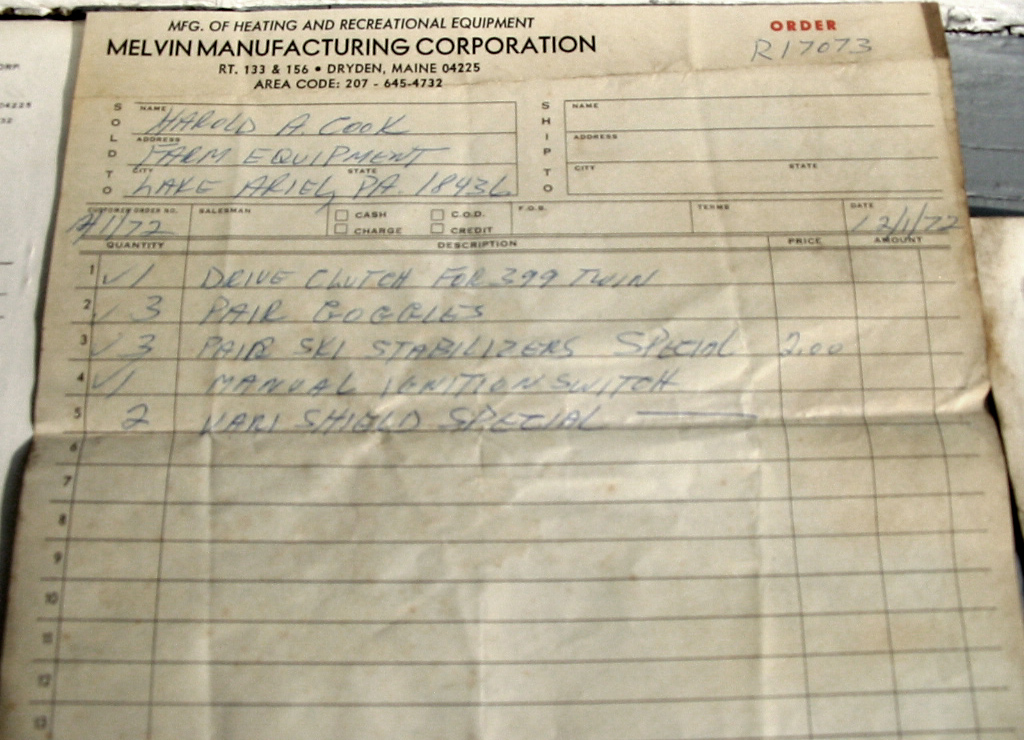 MFG. OF HEATING AND RECREATIONAL EQUIPMENT
ORDER
MELVIN MANUFACTURING CORPORATION
R17073
RT. 133 & 156 • DRYDEN, MAINE 04225
AREA CODE: 207 - 645-4732
SOLD TO
NAME HAROLD A. COOK
ADDRESS FARM EQUIPMENT
CITY STATE LAKE ARIEL, PA. 18436
SHIP TO
NAME
ADDRESS
CITY STATE
CUSTOMER ORDER NO. 12/1/72
SALESMAN
CASH
C.O.D.
CHARGE
CREDIT
F.O.B.
TERMS
DATE 12/1/72
QUANTITY DESCRIPTION PRICE AMOUNT
1 ✓ 1 DRIVE CLUTCH FOR 399 TWIN
2 ✓ 3 PAIR GOGGLES
3 ✓ 3 PAIR SKI STABILIZERS SPECIAL 2.00
4 ✓ 1 MANUAL IGNITION SWITCH
5 2 VARI SHIELD SPECIAL
6
7
8
9
10
11
12
13
ORP.
04225
32